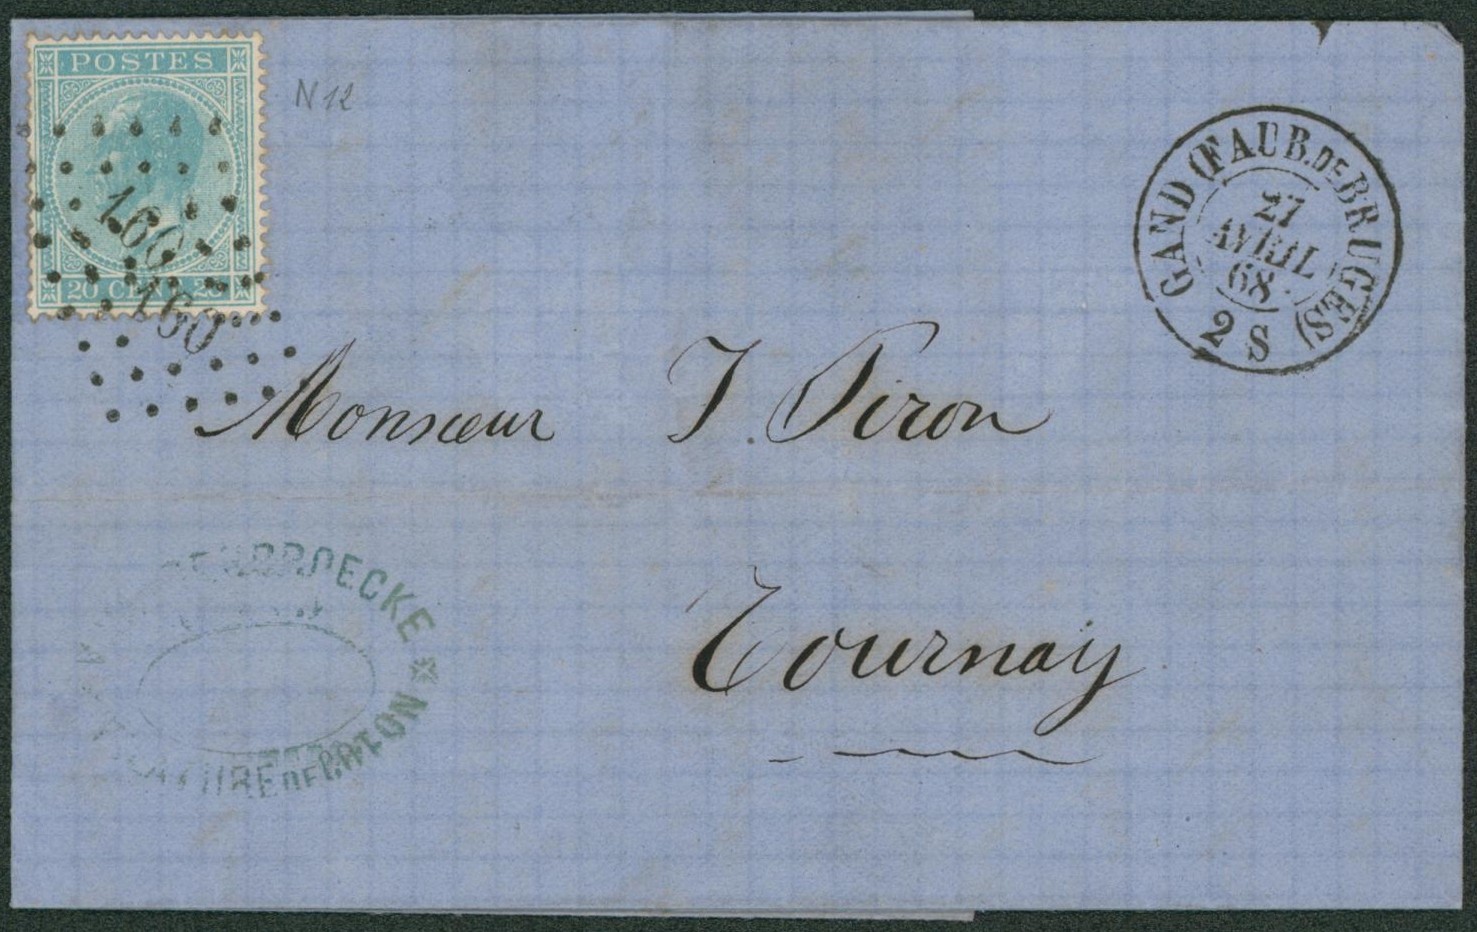 POSTES
N 12
160
20 CEN
160
GAND (FAUB. DE BRUGES)
27
AVRIL
68
2 S
Monsieur J. Piron
Tournay
BROECKE
DE COTON